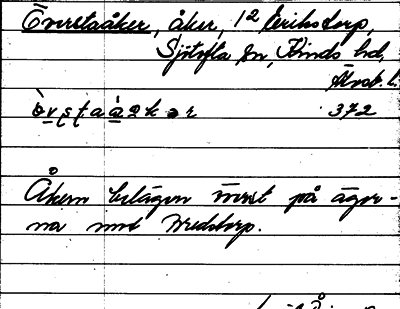 Överstaåker, åker, 12 Eriksdorp,
Sjötofta sn, Kinds hd,
Älvsb. l.
372
Åkern belägen överst på ägor-
na mot Bredstorp.